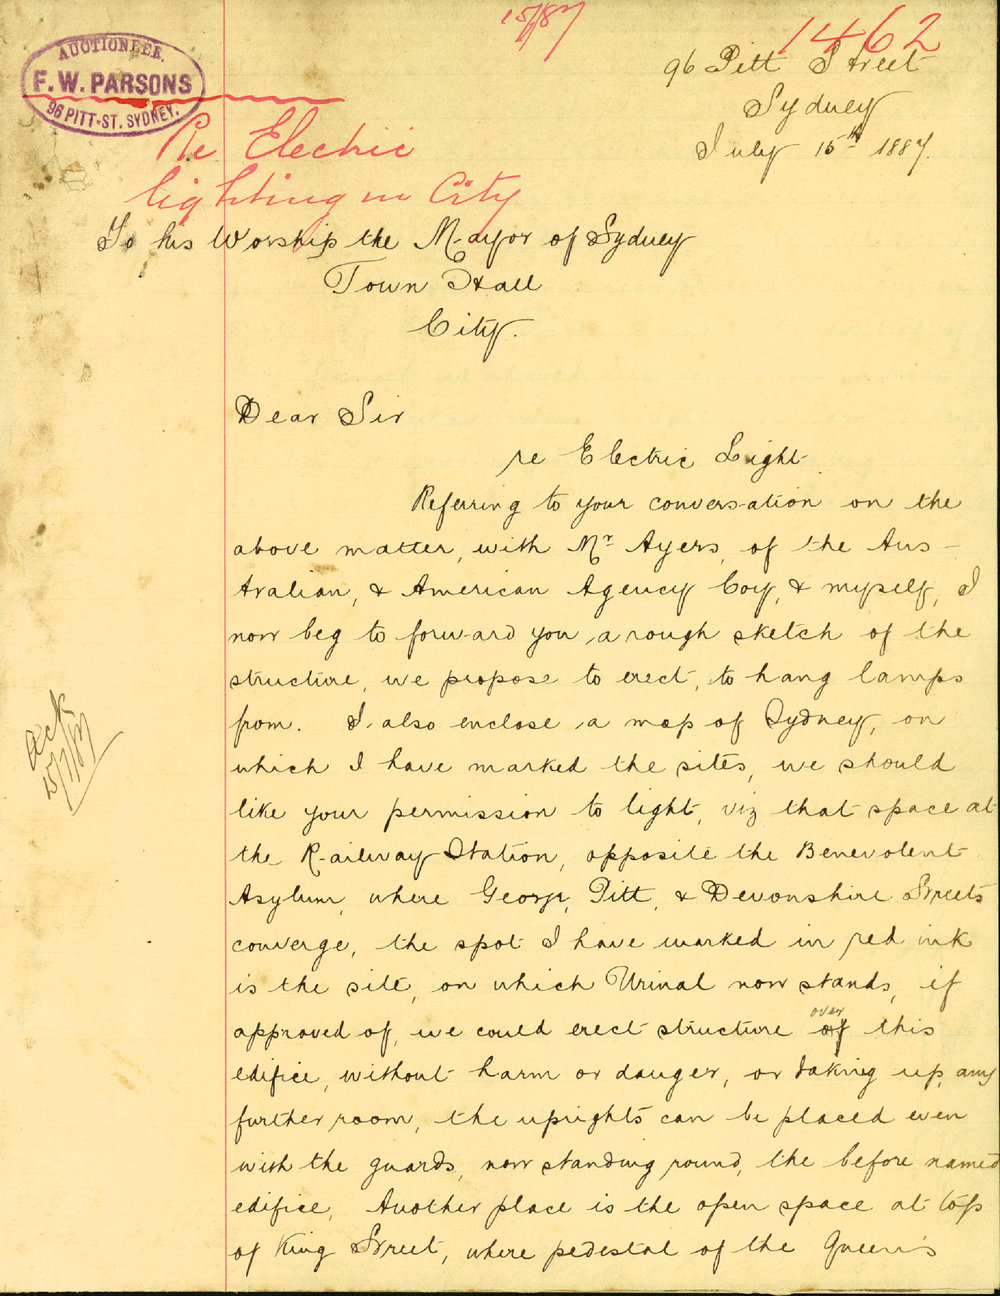 15/7/87
1462
AUCTIONEER.
F. W. PARSONS
96 PITT-ST. SYDNEY.
96 Pitt Street
Sydney
July 15th 1887.
Re Electric
lighting in City
To his Worship the Mayor of Sydney
Town Hall
City.
Dear Sir
re Electric Light
Referring to your conversation on the
above matter, with Mr Ayers, of the Aus-
tralian, & American Agency Coy, & myself, I
now beg to forward you a rough sketch of the
structure, we propose to erect, to hang lamps
from. I also enclose a map of Sydney, on
which I have marked the sites, we should
like your permission to light, viz that space at
the Railway Station, opposite the Benevolent
Asylum, where George, Pitt, & Devonshire Streets
converge, the spot I have marked in red ink
is the site, on which Urinal now stands, if
approved of, we could erect structure of over this
edifice, without harm or danger, or taking up, any
further room, the uprights can be placed even
with the guards, now standing round, the before named
edifice, Another place is the open space at top
of King Street, where pedestal of the Queen's
Ack
15/7/87